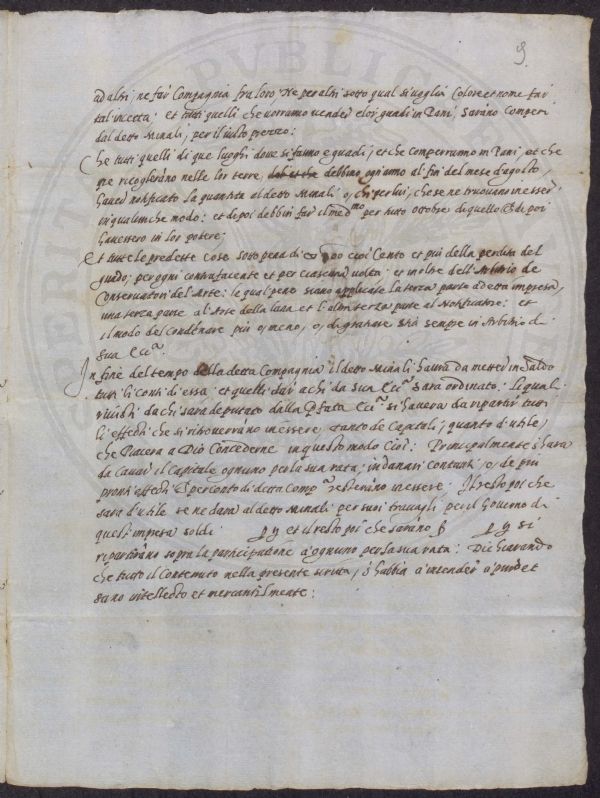 9
ad altri, ne far Compagnia fra loro, Ne per altri sotto qual si voglia Colore et nome far
tal incetta: et tutti quelli che vorranno vender e lor guadi in Pani, sarāno Comperi
dal detto Minali, per il iusto prezzo:
Che tutti quelli di que luoghi dove si fanno e guadi, et che comperranno in Pani, et che
ne ricoglierāno nelle lor terre, debbino ogni anno al fin del mese d'agosto,
haver notificato la quantita al detto Minali o, chi per lui, che se ne truovano in esser
in qualunche modo: et di poi debbin far il med.mo per tutto ottobre di quello di poi
havessero in lor potere:
Et tutte le predette cose sotto pena di 100 cioè Cento et più della perdita del
guado, per ogni contrafacente et per ciascuna volta: et inoltre dell'Arbitrio de
Conservatori del'Arte: le qual pene siano applicate la terza parte a detta impresa,
una terza parte al'Arte della lana et l'altra terza parte al Notificatore: et
il modo del condēnare più o, meno, o, di gravare stia sempre in Arbitrio di
sua Ecc.a
In fine del tempo della detta Compagnia il detto Minali havrà da metter in saldo
tutti li conti di essa, et quelli dar a chi da sua Ecc.a sarà ordinato: li quali
rivisti da chi sarà deputato dalla P.fata Ecc.a si haverà da ripartir tutti
li effetti che si ritroverranno in essere tanto de Capitali, quanto d'utile,
che Piacerà a Dio Concederne in questo modo Cioè: Principalmente s'harà
da cavar il Capitale ognuno per la sua rata, in danari contanti, o, de più
pronti effetti che per conto di detta Comp.a resterāno in essere: Il resto poi che
sarà d'utile se ne darà al detto Minali per suoi travagli per il Governo di
quest'impresa soldi et il resto poi che sarāno si
ripartirāno sopra la participatione a ognuno per la sua rata: Dichiarando
che tutto il Contenuto nella presente scritta, s'habbia a intender a puro et
sano intelletto et mercantilmente: